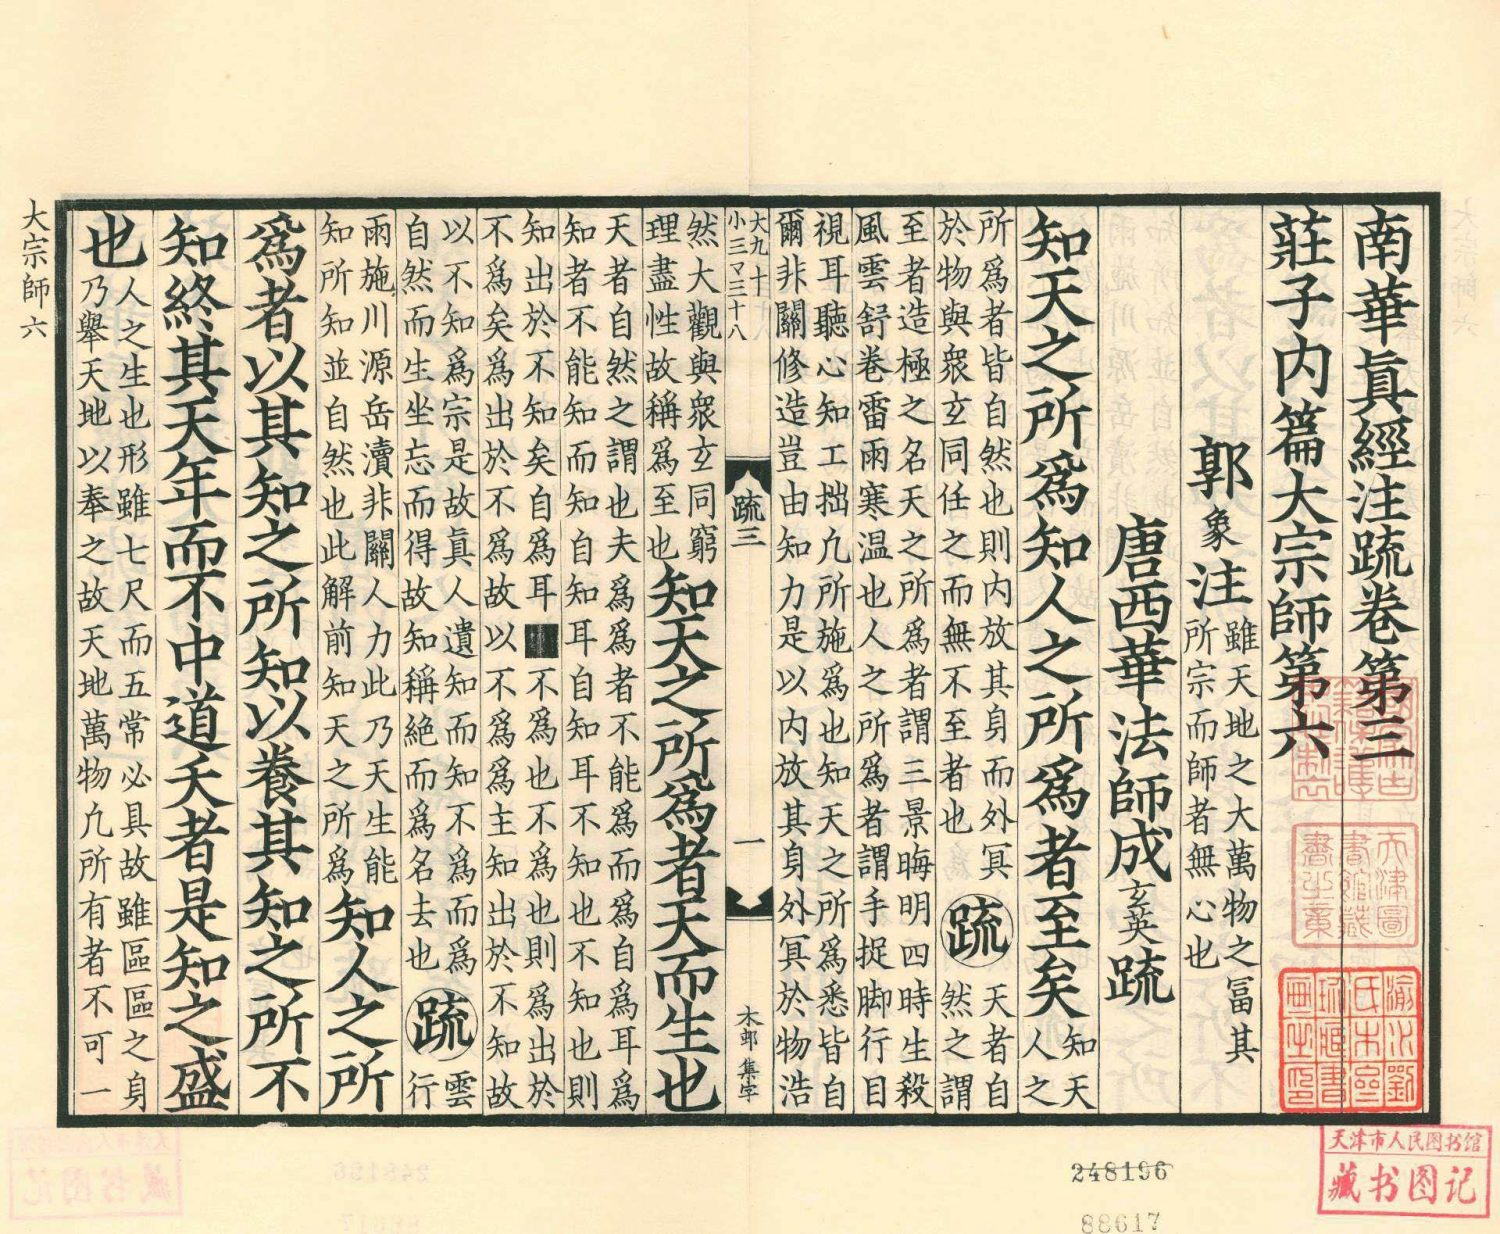 南華眞經注䟽卷第三
莊子內篇大宗師第六
郭象注
雖天地之大萬物之冨其
所宗而師者無心也
唐西華法師成玄英䟽
知天之所爲知人之所爲者至矣
知天
人之
所爲者皆自然也則内放其身而外冥
於物與衆玄同任之而無不至者也
䟽
天者自
然之謂
至者造極之名天之所爲者謂三景晦明四時生殺
風雲舒卷雷雨寒温也人之所爲者謂手捉脚行目
視耳聽心知工拙凢所施爲也知天之所爲悉皆自
爾非關修造豈由知力是以内放其身外冥於物浩
大九十八
小三マ三十八
䟽三
一
木郎 集字
然大觀與衆玄同窮
理盡性故稱爲至也
知天之所爲者天而生也
天者自然之謂也夫爲爲者不能爲而爲自爲耳爲
知者不能知而知自知耳自知耳不知也不知也則
知出於不知矣自爲耳不爲也不爲也則爲出於
不爲矣爲出於不爲故以不爲爲主知出於不知故
以不知爲宗是故眞人遺知而知不爲而爲
自然而生坐忘而得故知稱絶而爲名去也
䟽
雲
行
雨施川源岳瀆非關人力此乃天生能
知所知並自然也此解前知天之所爲
知人之所
爲者以其知之所知以養其知之所不
知終其天年而不中道夭者是知之盛
也
人之生也形雖七尺而五常必具故雖區區之身
乃舉天地以奉之故天地萬物凢所有者不可一
大宗師六
渝水劉
氏木齋
珍臧書
畫之印
天津圖
書館藏
書之章
天津市人民图书馆
藏书图记
248196
88617